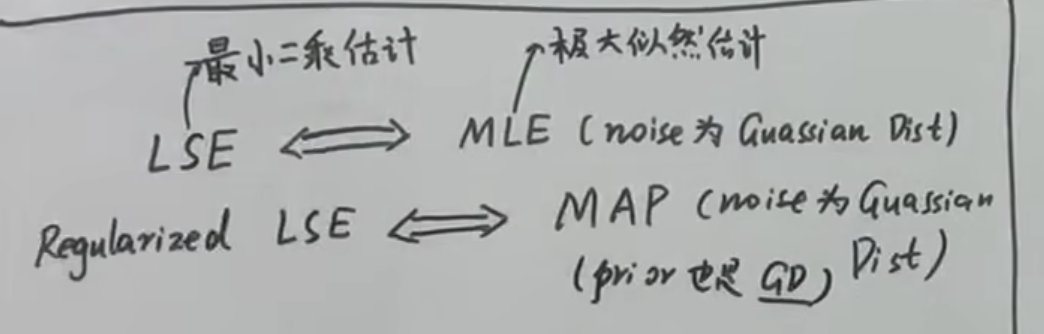 最小二乘估计
极大似然估计
LSE ⟺ MLE (noise为 Guassian Dist)
Regularized LSE ⟺ MAP (noise为Guassian
Dist)
(prior也是 GD)